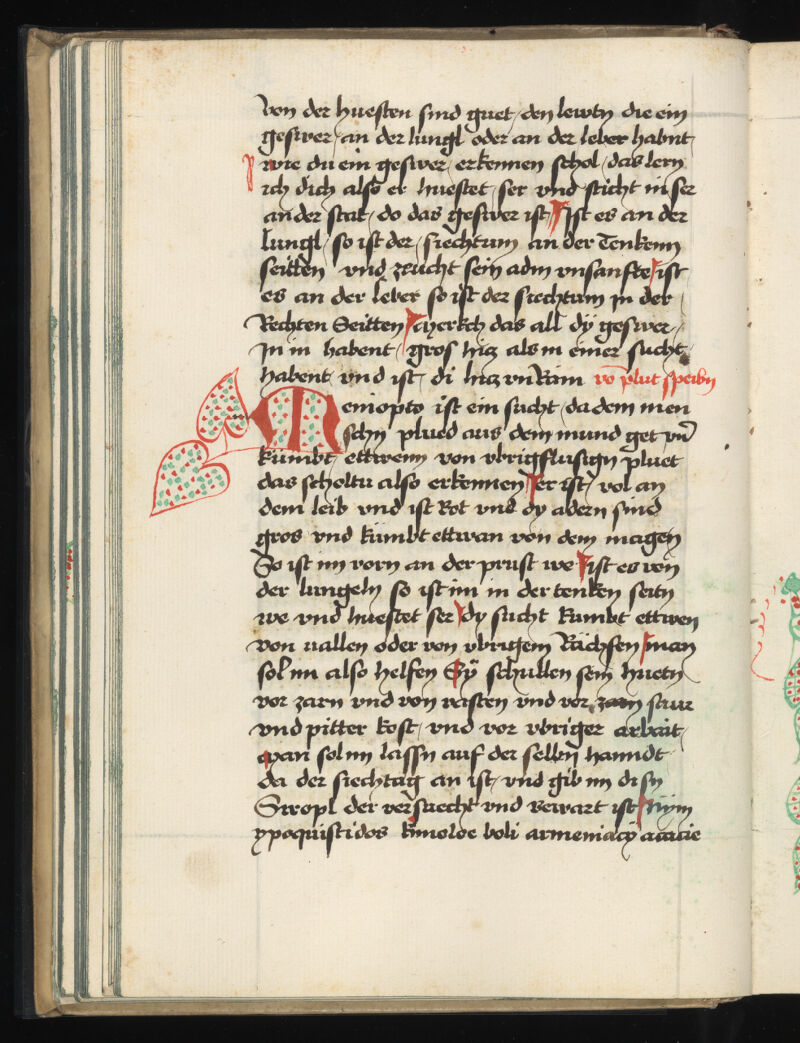 von der huesten sind guet / den lewtn die ein
geswer / an der lungl oder an der leber habnt
wie du ein geswer / erkennen schol / das lern
ich dich also er huestet / ser vnd sticht in ser
an der stat / do das geswer ist / Ist es an der
lungl / so ist der / siechtum an der Tenkenn
seitten vnd zeucht sein adm vnsanfte / ist
es an der leber so ist der siechtum in der /
Rechten Seitten / Merkch das all dÿ geswer /
In in habent / gros hicz als in einer sucht /
habent vnd ist / di hicz vō plut speibn
Emopto ist ein sucht / da dem men
schn plued aus dem mund get vn̄
kumbt / ettwenn von vbrigflusign pluet
das scholtu also erkennen / er ist / vol an
dem leib vnd ist Rot vnd dy adern sind
gros vnd kumbt ettwan von dem magen
So ist im vorn an der prust we / ist es von
der lungeln so ist im in der tenken seitn
we vnd huestet ser / dy sucht kumbt ettwen
von vallen oder von vbrigem Rächsen / man
sol im also helfen Sÿ schullen sein huetn
vor zarn vnd von vasten vnd vor saur
vnd pitter kost / vnd vor vbriger arbait /
man sol im lassn auf der selbn̄ hanndt
da der siechtag an ist / vnd gib im disn
Siropl der versuecht vnd bewart ist / Nym
ypoquistidos kimolee boli armeniacy acacie